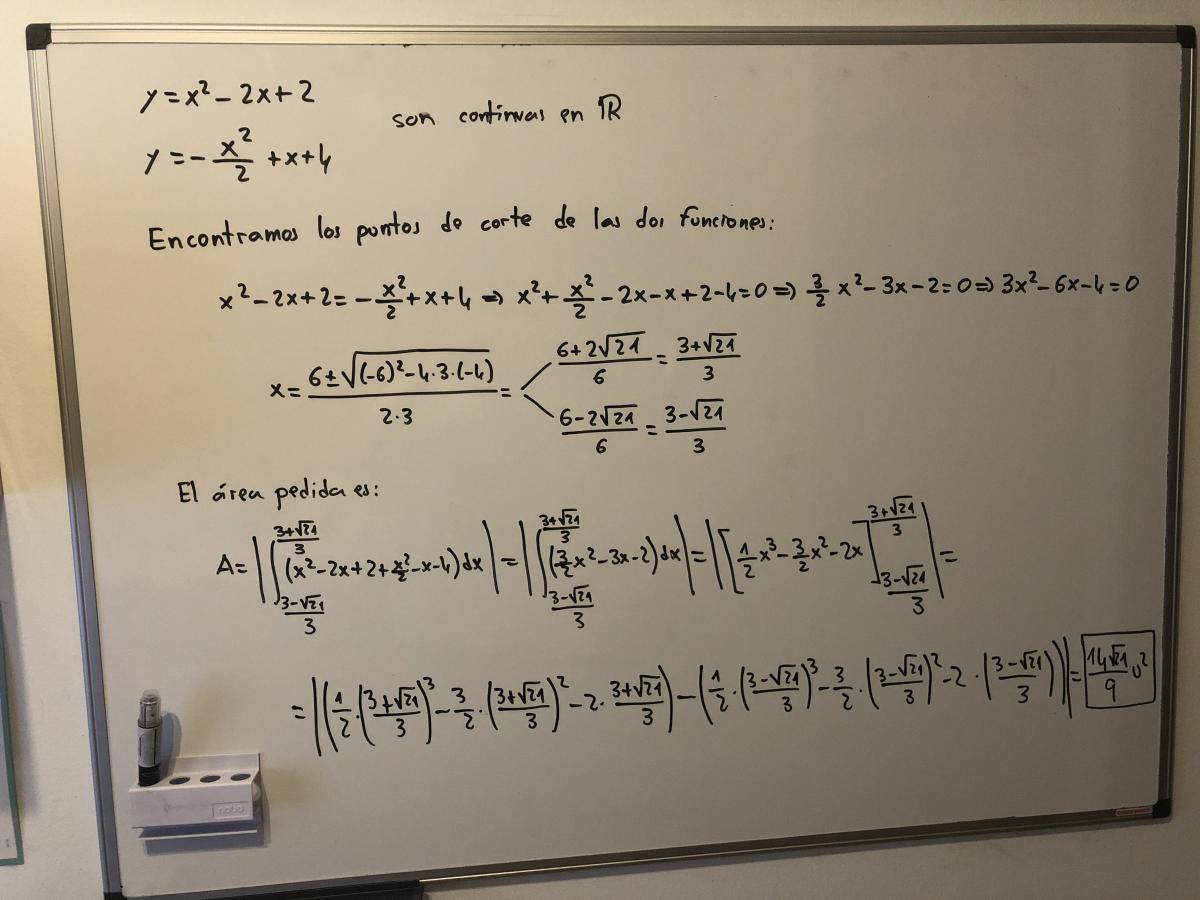 y = x² - 2x + 2
son continuas en ℝ
y = - x²/2 + x + 4
Encontramos los puntos de corte de las dos funciones:
x² - 2x + 2 = - x²/2 + x + 4 ⇒ x² + x²/2 - 2x - x + 2 - 4 = 0 ⇒ 3/2 x² - 3x - 2 = 0 ⇒ 3x² - 6x - 4 = 0
x = (6 ± √((-6)² - 4·3·(-4)))/(2·3) =
(6 + 2√21)/6 = (3 + √21)/3
(6 - 2√21)/6 = (3 - √21)/3
El área pedida es:
A = |∫_{(3-√21)/3}^{(3+√21)/3} (x² - 2x + 2 + x²/2 - x - 4) dx| = |∫_{(3-√21)/3}^{(3+√21)/3} (3/2 x² - 3x - 2) dx| = |[1/2 x³ - 3/2 x² - 2x]_{(3-√21)/3}^{(3+√21)/3}| =
= |(1/2 · ((3+√21)/3)³ - 3/2 · ((3+√21)/3)² - 2 · (3+√21)/3) - (1/2 · ((3-√21)/3)³ - 3/2 · ((3-√21)/3)² - 2 · ((3-√21)/3))| = 14√21/9 u²
nobo